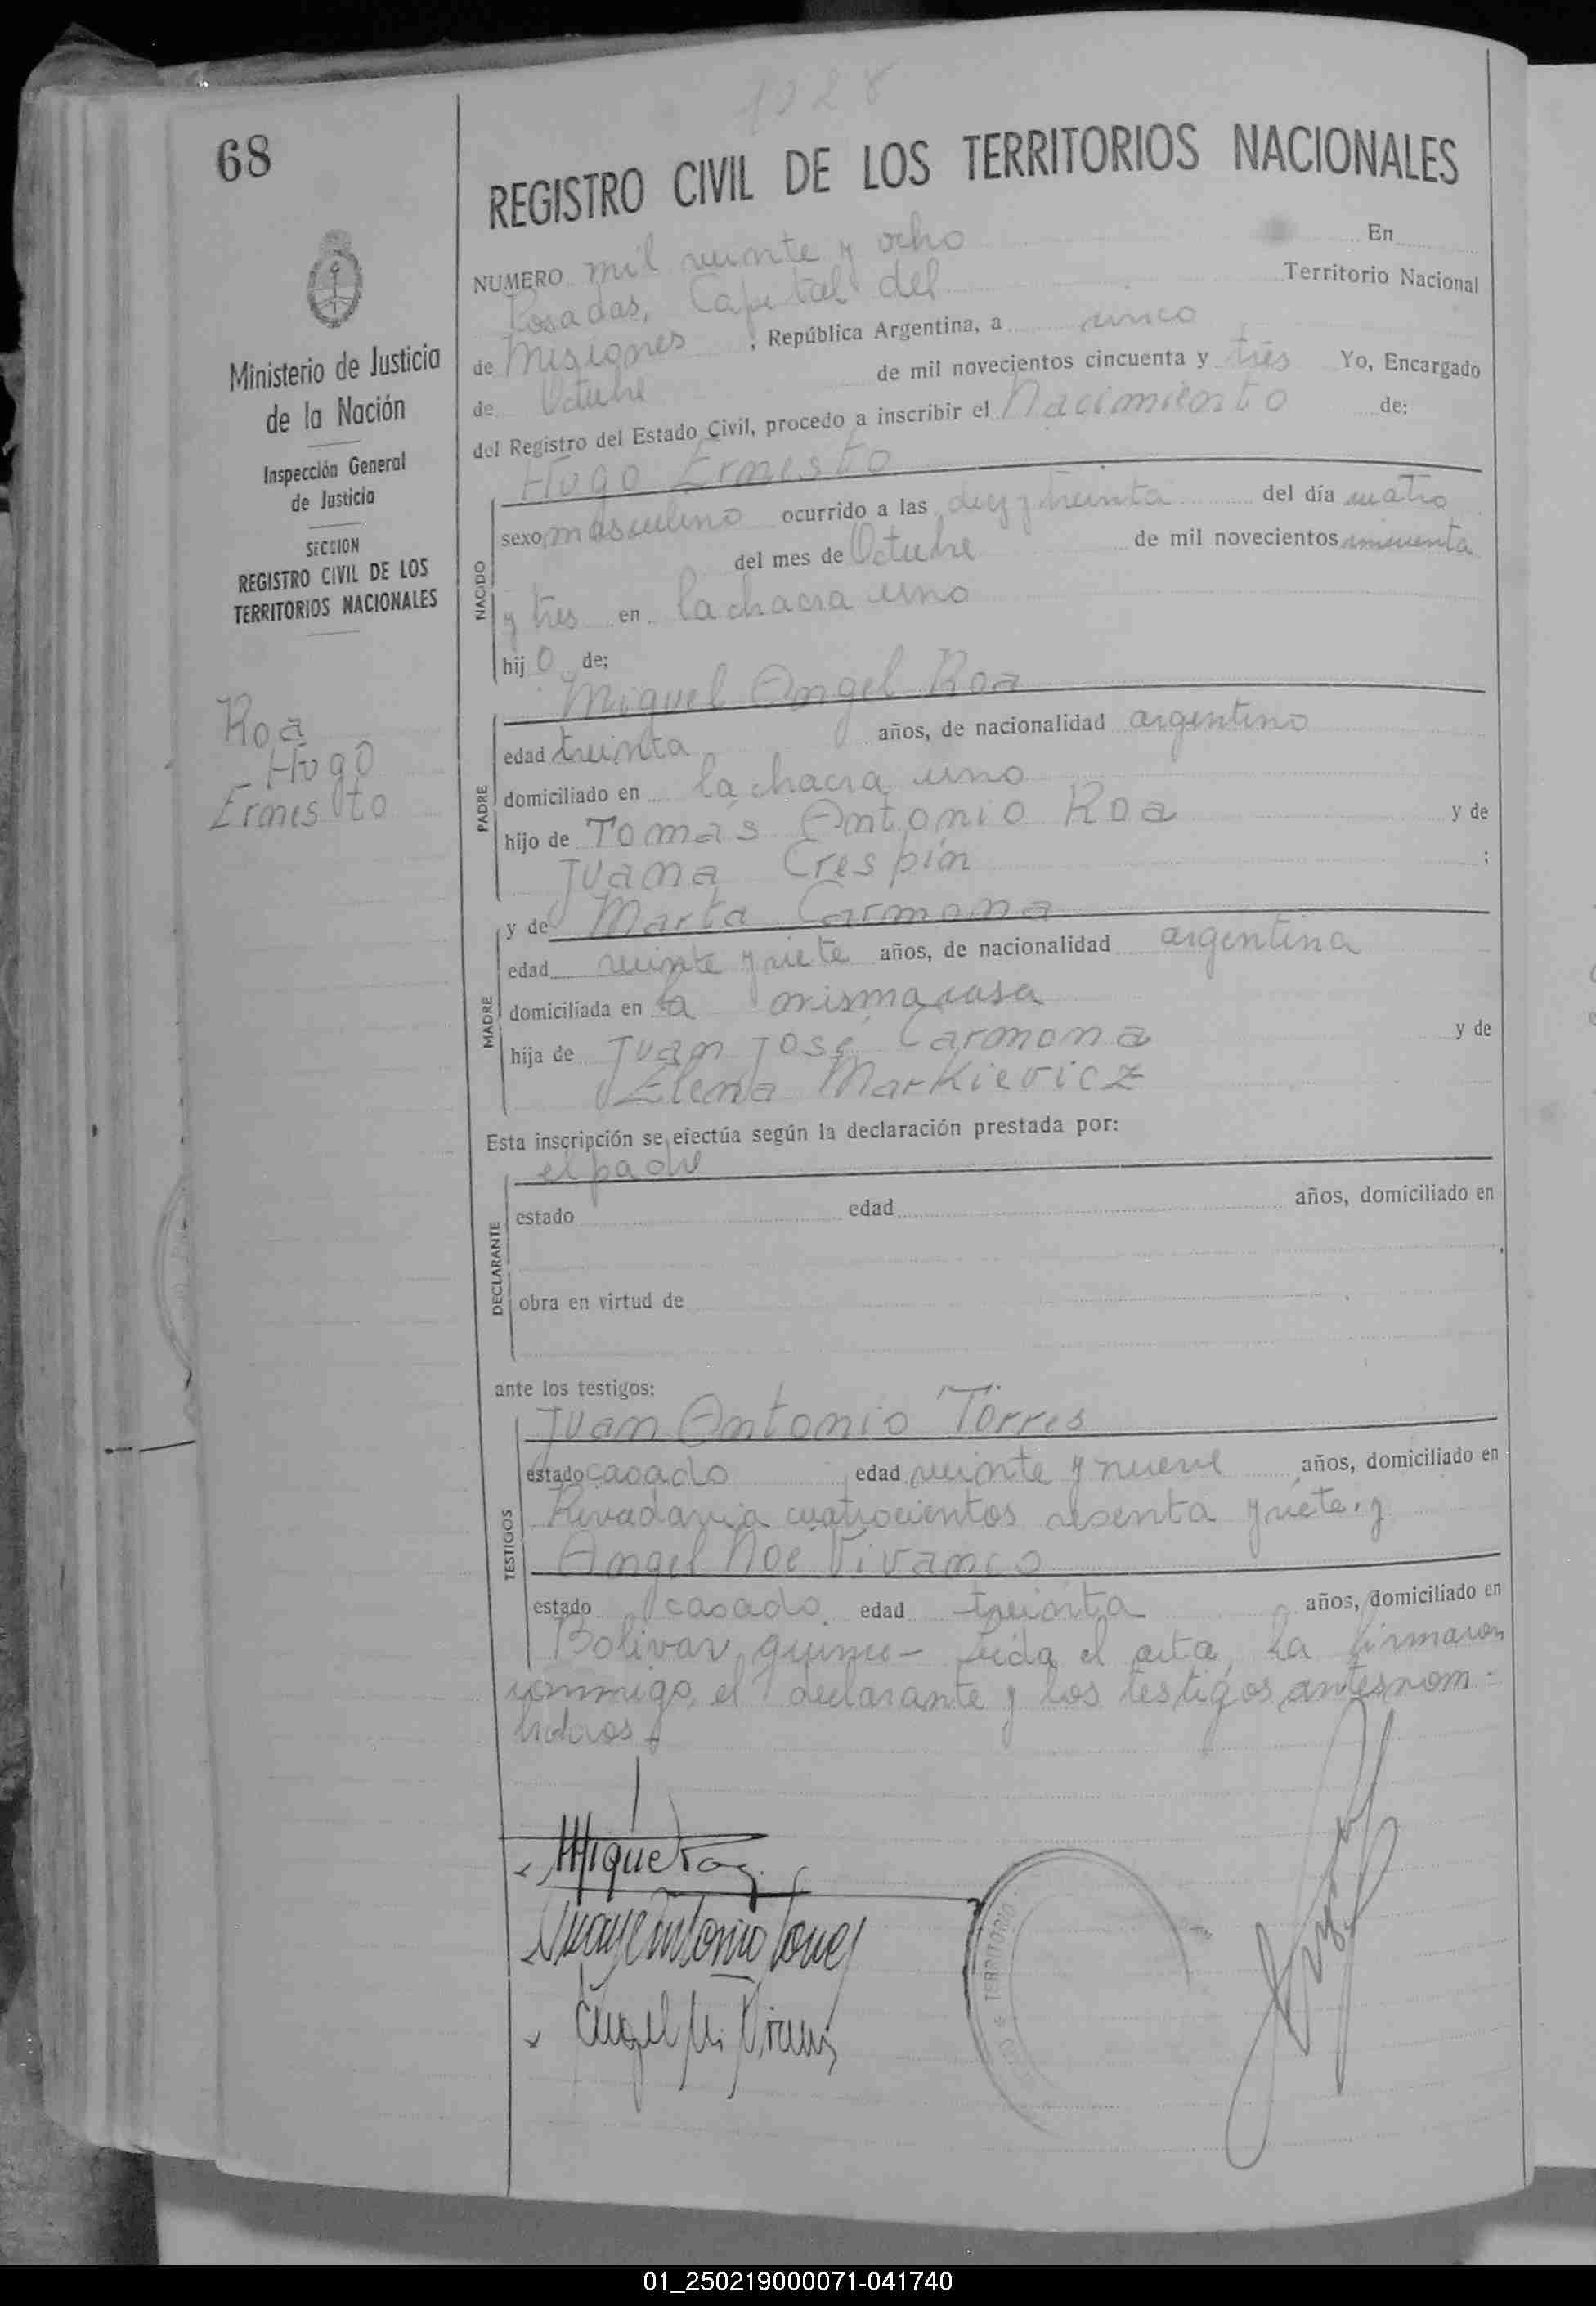 1028
68
REGISTRO CIVIL DE LOS TERRITORIOS NACIONALES
NUMERO mil veinte y ocho En
Posadas, Capital del Territorio Nacional
de Misiones, República Argentina, a cinco
de Octubre de mil novecientos cincuenta y tres Yo, Encargado
del Registro del Estado Civil, procedo a inscribir el Nacimiento de:
Ministerio de Justicia
de la Nación
Inspección General
de Justicia
SECCION
REGISTRO CIVIL DE LOS
TERRITORIOS NACIONALES
Roa
Hugo
Ernesto
NACIDO
Hugo Ernesto
sexo masculino ocurrido a las diez y treinta del día cuatro
del mes de Octubre de mil novecientos cincuenta
y tres en la chacra uno
hijo de:
PADRE
Miguel Angel Roa
edad treinta años, de nacionalidad argentino
domiciliado en la chacra uno
hijo de Tomás Antonio Roa y de
Juana Crespín ;
MADRE
y de Marta Carmona
edad veinte y siete años, de nacionalidad argentina
domiciliada en la misma casa
hija de Juan José Carmona y de
Elena Markievicz
Esta inscripción se efectúa según la declaración prestada por:
DECLARANTE
el padre
estado edad años, domiciliado en
obra en virtud de
ante los testigos:
TESTIGOS
Juan Antonio Torres
estado casado edad veinte y nueve años, domiciliado en
Rivadavia cuatrocientos sesenta y siete. y
Angel Noé Vivanco
estado casado edad treinta años, domiciliado en
Bolivar quince - Leida el acta, la firmaron
conmigo, el declarante y los testigos antes nom-
brados
Miguel Roa
Juan Antonio Torres
TERRITORIO
01_250219000071-041740